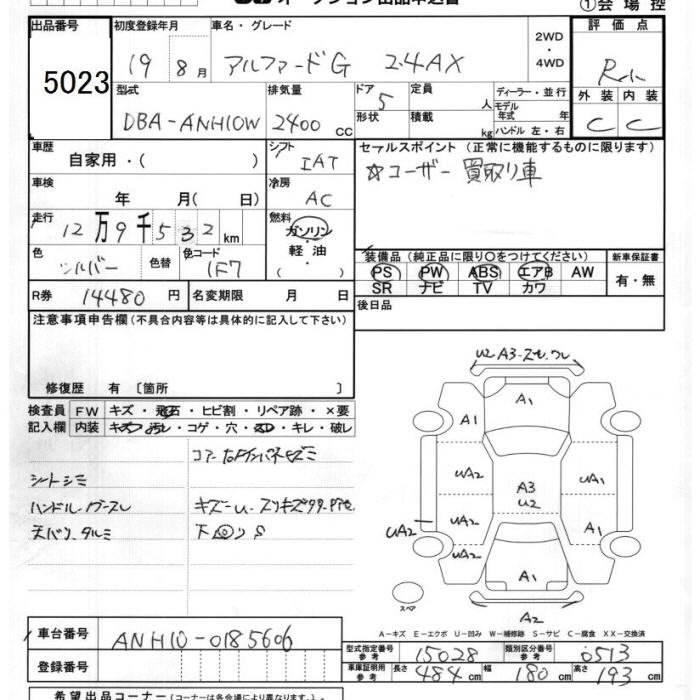 オークション出品申込書
①会場控
出品番号 初度登録年月 車名・グレード 評価点
5023 19 8月 アルファードG 2.4AX 2WD・4WD
型式 排気量 ドア 定員 ディーラー・並行
DBA-ANH10W 2400cc 5 人 モデル年式 年
形状 積載 kg ハンドル 左・右
外装 内装
C C
車歴 自家用・( ) シフト IAT
セールスポイント(正常に機能するものに限ります)
☆ユーザー買取り車
車検 年 月(日) 冷房 AC
走行 12万9千532km 燃料 ガソリン・軽油( )
色 シルバー 色替 色コード 1F7
装備品(純正品に限り○をつけてください) 新車保証書
PS PW ABS エアB AW 有・無
SR ナビ TV カワ
R券 14480円 名変期限 月 日
後日品
注意事項申告欄(不具合内容等は具体的に記入して下さい)
修復歴 有〔箇所 〕
検査員記入欄 FW キズ・飛石・ヒビ割・リペア跡・×要
内装 キズ・汚レ・コゲ・穴・スレ・キレ・破レ
シートシミ
ハンドル
天バリ タルミ
下回りS
U2 A3
A1
A1
UA2 A3 U2 UA1
UA2 UA2 A1
UA2
A1
スペア
A2
A-キズ E-エクボ U-凹み W-補修跡 S-サビ C-腐食 XX-交換済
車台番号 ANH10-0185606
型式指定番号 参考 15028 類別区分番号 参考 0513
登録番号
車庫証明用 参考 長さ 484cm 幅 180cm 高さ 193cm
希望出品コーナー(コーナーは各会場により異なります)